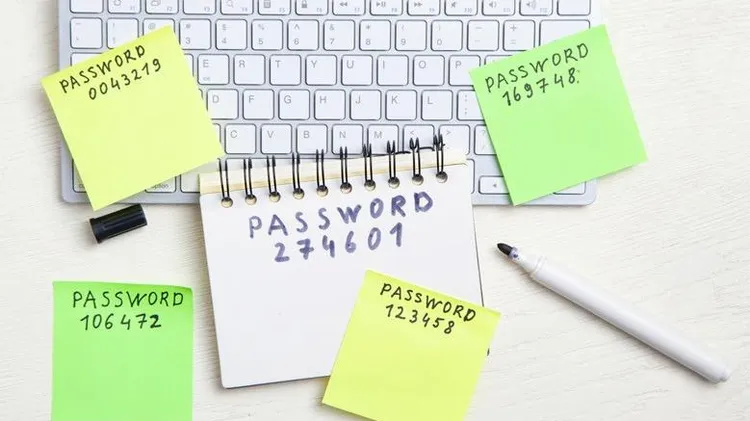 PASSWORD
0043219
PASSWORD
169748.
PASSWORD
274601
PASSWORD
106472
PASSWORD
123458